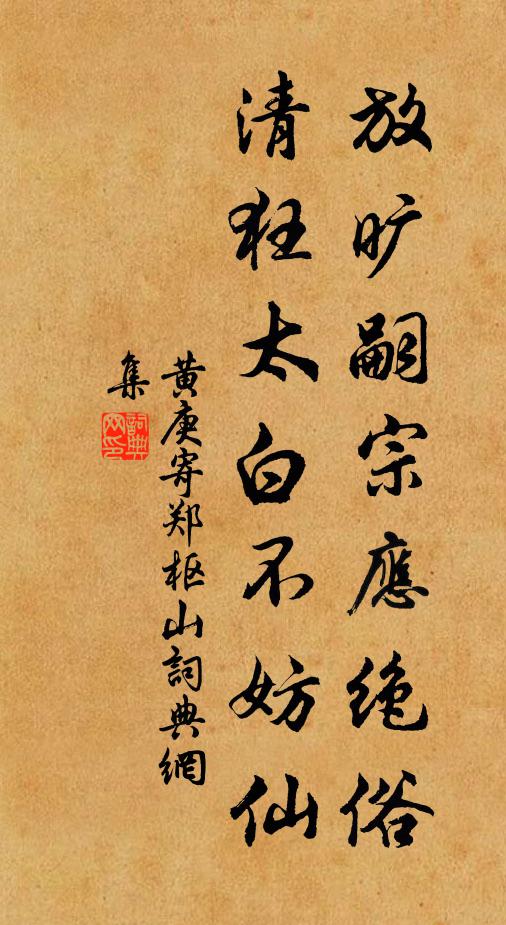 放旷嗣宗應絶俗
清狂太白不妨仙
黄庚寄郑枢山詞典網
集
詞典
网印